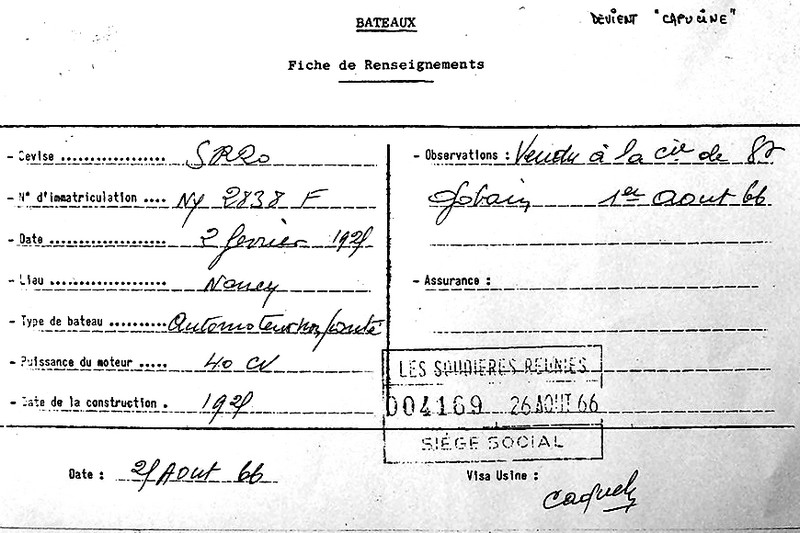 BATEAUX
DEVIENT "CAPUCINE"
Fiche de Renseignements
- Cevise .................. SR20
- N° d'immatriculation .... Ny 2838 F
- Date .................... 2 février
- Liau .................... Nancy
- Type de bateau .......... Automoteur non ponté
- Puissance du moteur ..... 40 CV
- Date de la construction .
- Observations : Vendu à la cie de St
Gobain 1er Aout 66
- Assurance :
LES SOUDIERES REUNIES
004169 26 AOUT 66
SIÈGE SOCIAL
Date : Aout 66
Visa Usine :